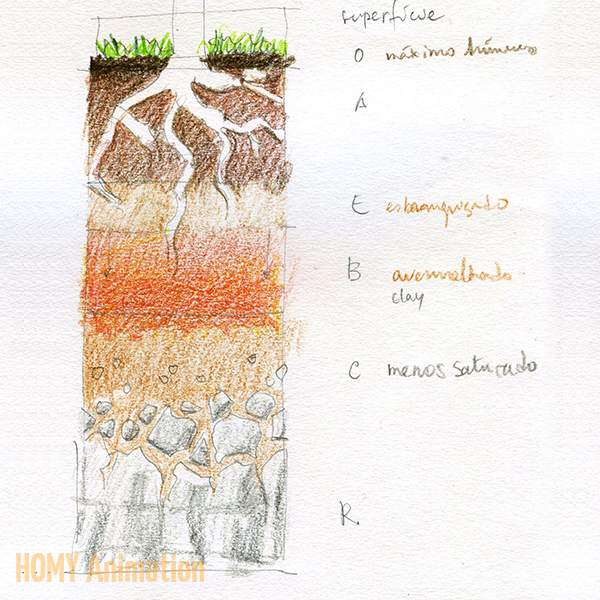 superfície
O máximo húmus
A
E esbranquiçado
B avermelhado
clay
C menos saturado
R.
HOMY Animation